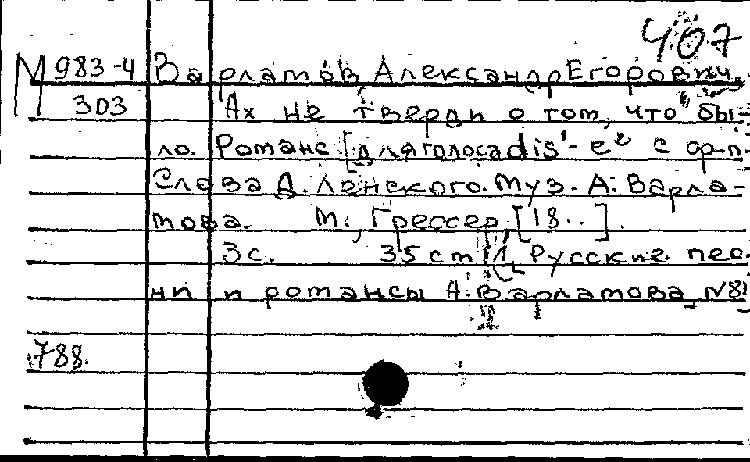 407
М 983-4 Варламов, Александр Егорович.
303 Ах не тверди о том, что бы-
ло. Романс [для голоса dis'-e² с ф-п
Слова Д. Ленского. Муз. А. Варла-
мова. М., Грессер, [18..].
3с. 35cm (Русские пес-
ни и романсы А. Варламова N81
788.